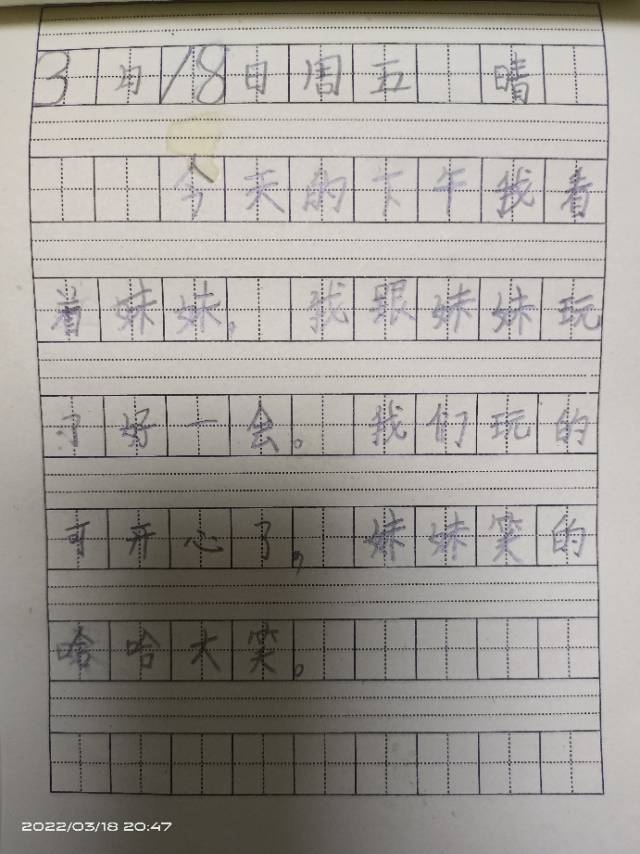 3月18日周五 晴
今天的下午我看
着妹妹， 我跟妹妹玩
了好一会。 我们玩的
可开心了， 妹妹笑的
哈哈大笑。
2022/03/18 20:47